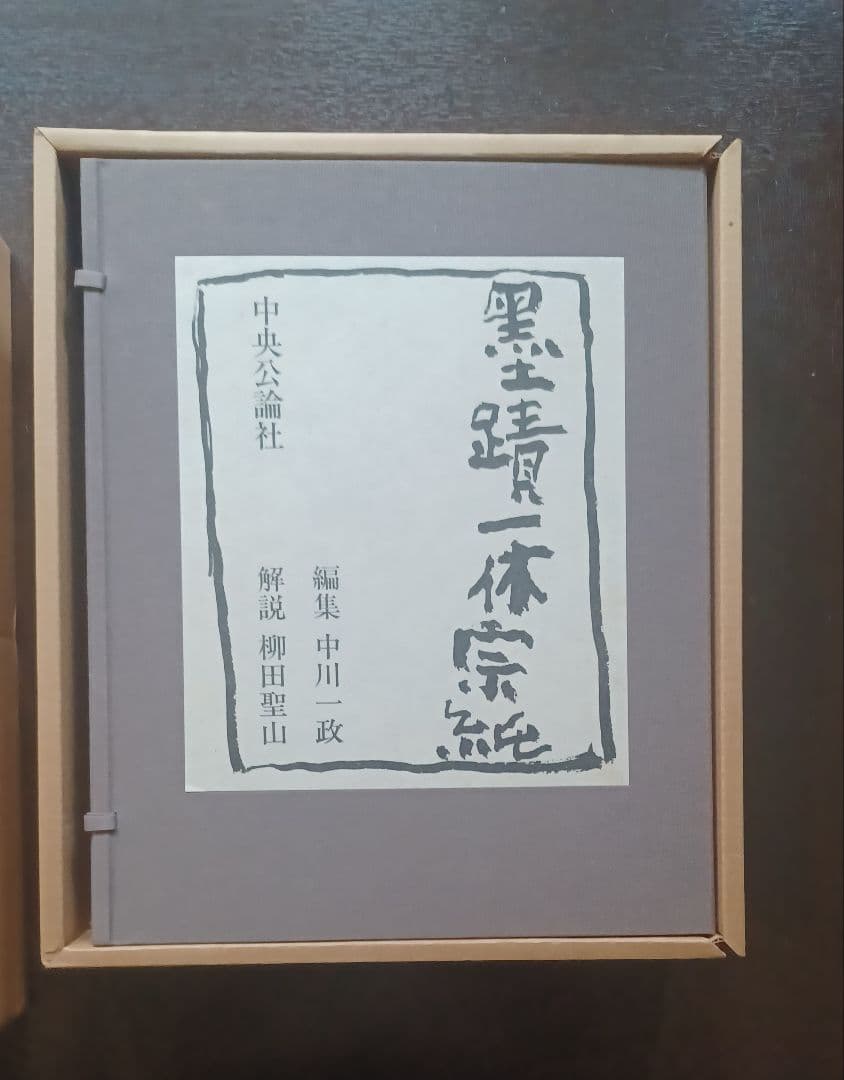 墨蹟一休宗純
編集 中川一政
解説 柳田聖山
中央公論社